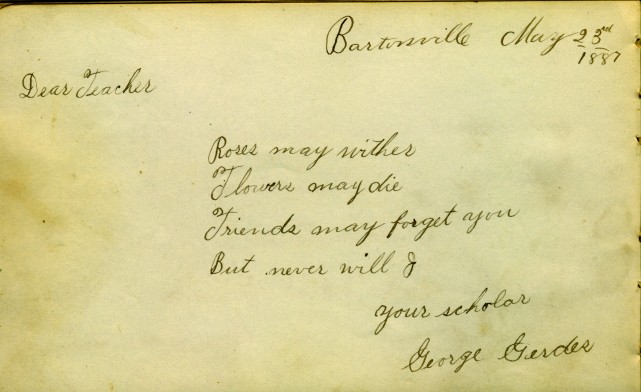 Bartonsville May 23rd
1887
Dear Teacher
Roses may wither
Flowers may die
Friends may forget you
But never will I
your scholar
George Gerdes